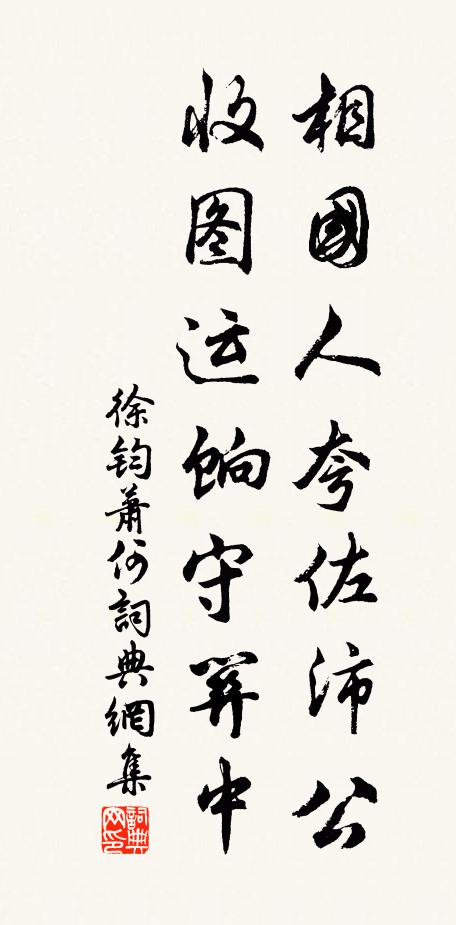 相國人夸佐沛公
收图运餉守關中
徐鈞蕭何詞典網集
詞典网印